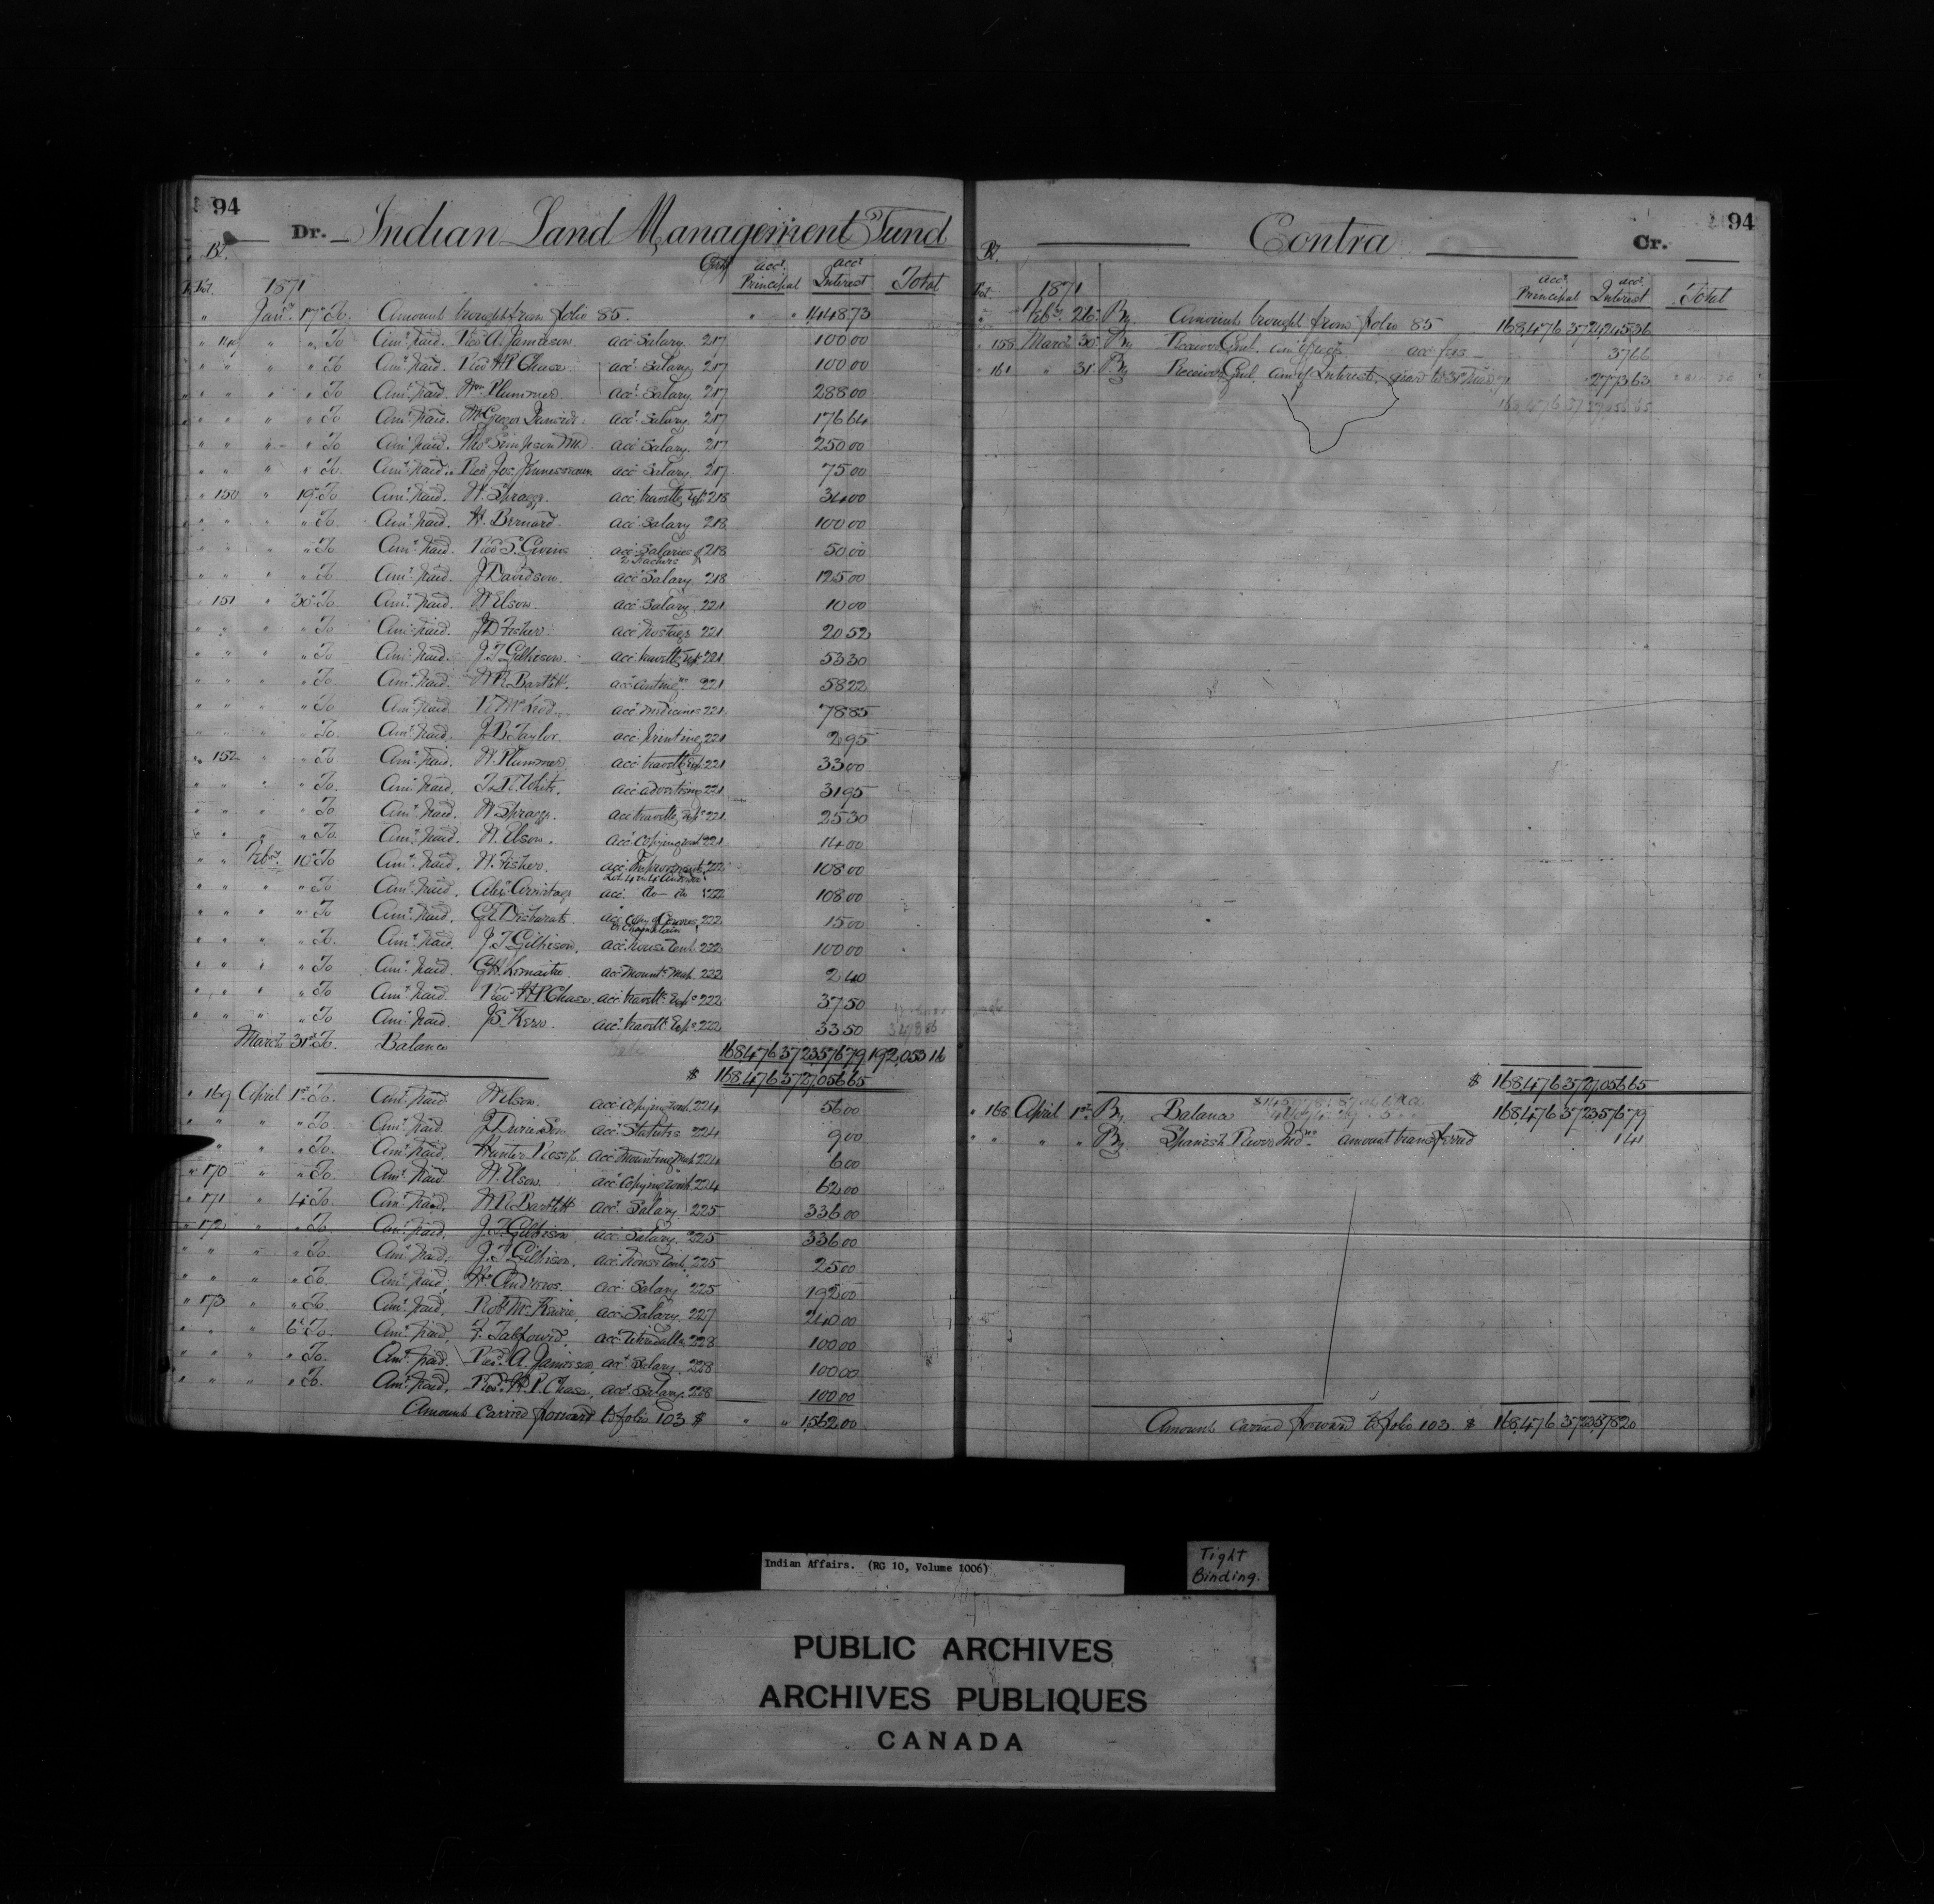 94
Dr. Indian Land Management Fund
Bl. Certf. acct. Principal acct. Interest Total
Fol. 1871
" Jany. 17th To Amount brought from folio 85. " " 1,448.73
" 149 " " To Amt. paid. Revd A. Jamieson acct Salary. 217 100.00
" " " " To Amt. paid. Revd H.P. Chase acct. Salary 217 100.00
" " " " To Amt. paid. Wm. Plummer acct. Salary. 217 288.00
" " " " To Amt. paid. acct. Salary. 217 176.64
" " " " To Amt. paid. Thos. Simpson M.D. acct Salary. 217 250.00
" " " " To Amt. paid. Revd Jos. acct Salary. 217 75.00
" 150 " 19th To Amt. paid. W. Spragge. acct. travellg Exps. 218 34.00
" " " " To Amt. paid. H. Bernard. acct Salary 218 100.00
" " " " To Amt. paid. Revd S. Givins acct Salaries of 2 Teachers 218 50.00
" " " " To Amt. paid. J. Davidson. acct Salary 218 125.00
" 151 " 30th To Amt. paid. W. Elson. acct Salary. 221 10.00
" " " " To Amt. paid. J.D. Fisher. acct Postage 221 20.52
" " " " To Amt. paid. J.T. Gilkison. acct. travellg Exps 221 53.30
" " " " To Amt. paid. W.R. Bartlett. acct 221 58.22
" " " " To Amt. paid. R. McLeod. acct. medicines 221 78.85
" " " " To Amt. paid. J.B. Taylor. acct. printing 221 2.95
" 152 " " To Amt. paid. W. Plummer. acct travellg exps. 221 33.00
" " " " To Amt. paid. T. White. acct advertising 221 31.95
" " " " To Amt. paid. W. Spragge. acct travellg exps 221 25.30
" " " " To Amt. paid. W. Elson. acct. Copying work 221 14.00
" " Feby. 10th To Amt. paid. W. Fisher. acct. Improvements 222 108.00
" " " " To Amt. paid. Alexr. Armitage acct. do — do 222 108.00
" " " " To Amt. paid. G.E. Desbarats. acct. Copy of 222 15.00
" " " " To Amt. paid. J.T. Gilkison. acct. house rent 222 100.00
" " " " To Amt. paid. G.H. Lemaitre. acct Mountg Map. 222 2.40
" " " " To Amt. paid. Revd H.P. Chase. acct travellg Exps 222 37.50
" " " " To Amt. paid. J.S. Kerr. acct. travellg Exps 222 33.50
March 31st To Balance 168,476.37 23,576.79 192,053.16
$ 168,476.37 27,056.65
" 169 April 1st To Amt. paid W. Elson. acct. Copying work 224 56.00
" " " " To Amt. paid J. Durie & Son acct. Statutes 224 9.00
" " " " To Amt. paid Hunter Rose & Co acct. Mounting Map 224 6.00
" 170 " " To Amt. paid W. Elson. acct. Copying work 224 62.00
" 171 " 4th To Amt. paid. W.R. Bartlett acct. Salary. 225 336.00
" 172 " " To Amt. paid. J.T. Gilkison. acct. Salary. 225 336.00
" " " " To Amt. paid. J.T. Gilkison. acct. house rent. 225 25.00
" " " " To Amt. paid. Wm. Andrews. acct. Salary 225 192.00
" 173 " " To Amt. paid. Robt. McKenzie. acct. Salary. 227 240.00
" " " 6th To Amt. paid. F. Talfourd. acct. 228 100.00
" " " " To Amt. paid. Revd. A. Jamieson acct. Salary. 228 100.00
" " " " To Amt. paid. Revd. H.P. Chase. acct. Salary. 228 100.00
Amount carried forward to folio 103 $ " " 1,562.00
Contra Cr. 94
Bl. Fol. 1871 acct. Principal acct. Interest Total
" Feby. 26th By Amount brought from folio 85 168,476.37 24,245.36
" 158 March 30th By Receiver Genl. acct fees — 37.66
" 161 " 31 By Receiver Genl. amt of Interest, 2,773.63
$ 168,476.37 27,056.65
" 168 April 1st By Balance 168,476.37 23,576.79
" " " " By Spanish River Indns. amount transferred 1.41
Amount carried forward to folio 103. $ 168,476.37 23,578.20
Indian Affairs. (RG 10, Volume 1006)
Tight
Binding.
PUBLIC ARCHIVES
ARCHIVES PUBLIQUES
CANADA